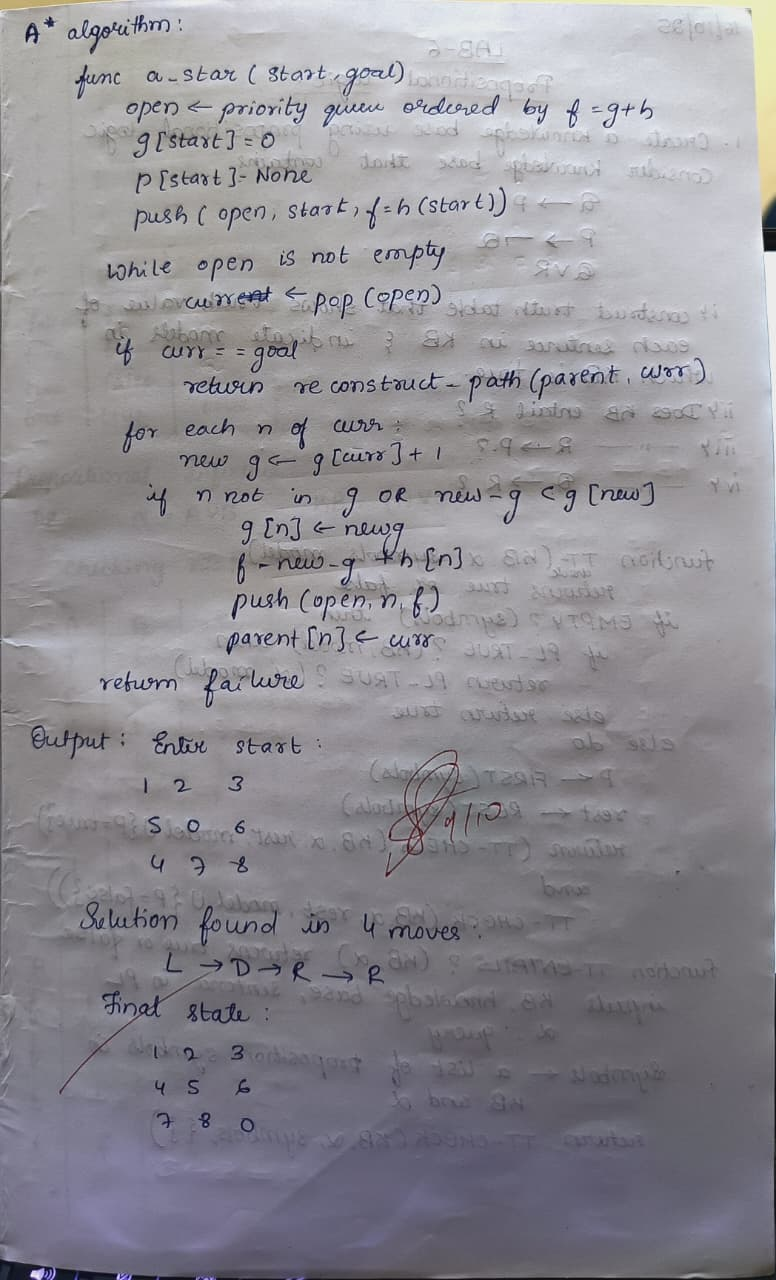 A* algorithm:
func a-star (start, goal)
open ← priority queue ordered by f = g+h
g[start] = 0
p[start] - None
push (open, start, f=h(start))
while open is not empty
current ← pop (open)
if curr == goal
return re construct - path (parent, curr)
for each n of curr:
new g ← g[curr] + 1
if n not in g OR new-g < g[new]
g[n] ← newg
f - new-g + h[n]
push (open, n, f)
parent [n] ← curr
return failure
Output: Enter start:
1 2 3
5 0 6
4 7 8
9/10
Solution found in 4 moves:
L → D → R → R
Final state:
1 2 3
4 5 6
7 8 0